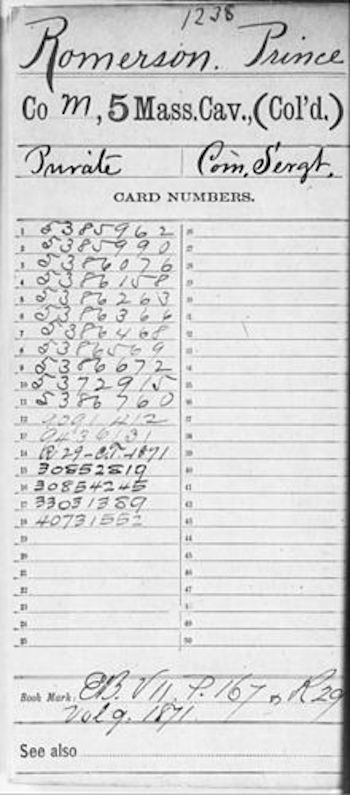 1238
Romerson. Prince
Co M, 5 Mass. Cav., (Col'd.)
Private Com. Sergt.
CARD NUMBERS.
1 5385962 26
2 5385990 27
3 5386076 28
4 5386158 29
5 5386263 30
6 5386366 31
7 5386468 32
8 5386569 33
9 5386672 34
10 5372915 35
11 5386760 36
12 9291412 37
13 9436131 38
14 R 29-C.T-1871 39
15 30852819 40
16 30854245 41
17 33031389 42
18 40731552 43
19 44
20 45
21 46
22 47
23 48
24 49
25 50
Book Mark: E.B. V 11, P. 167 R 29
Vol 9. 1871
See also